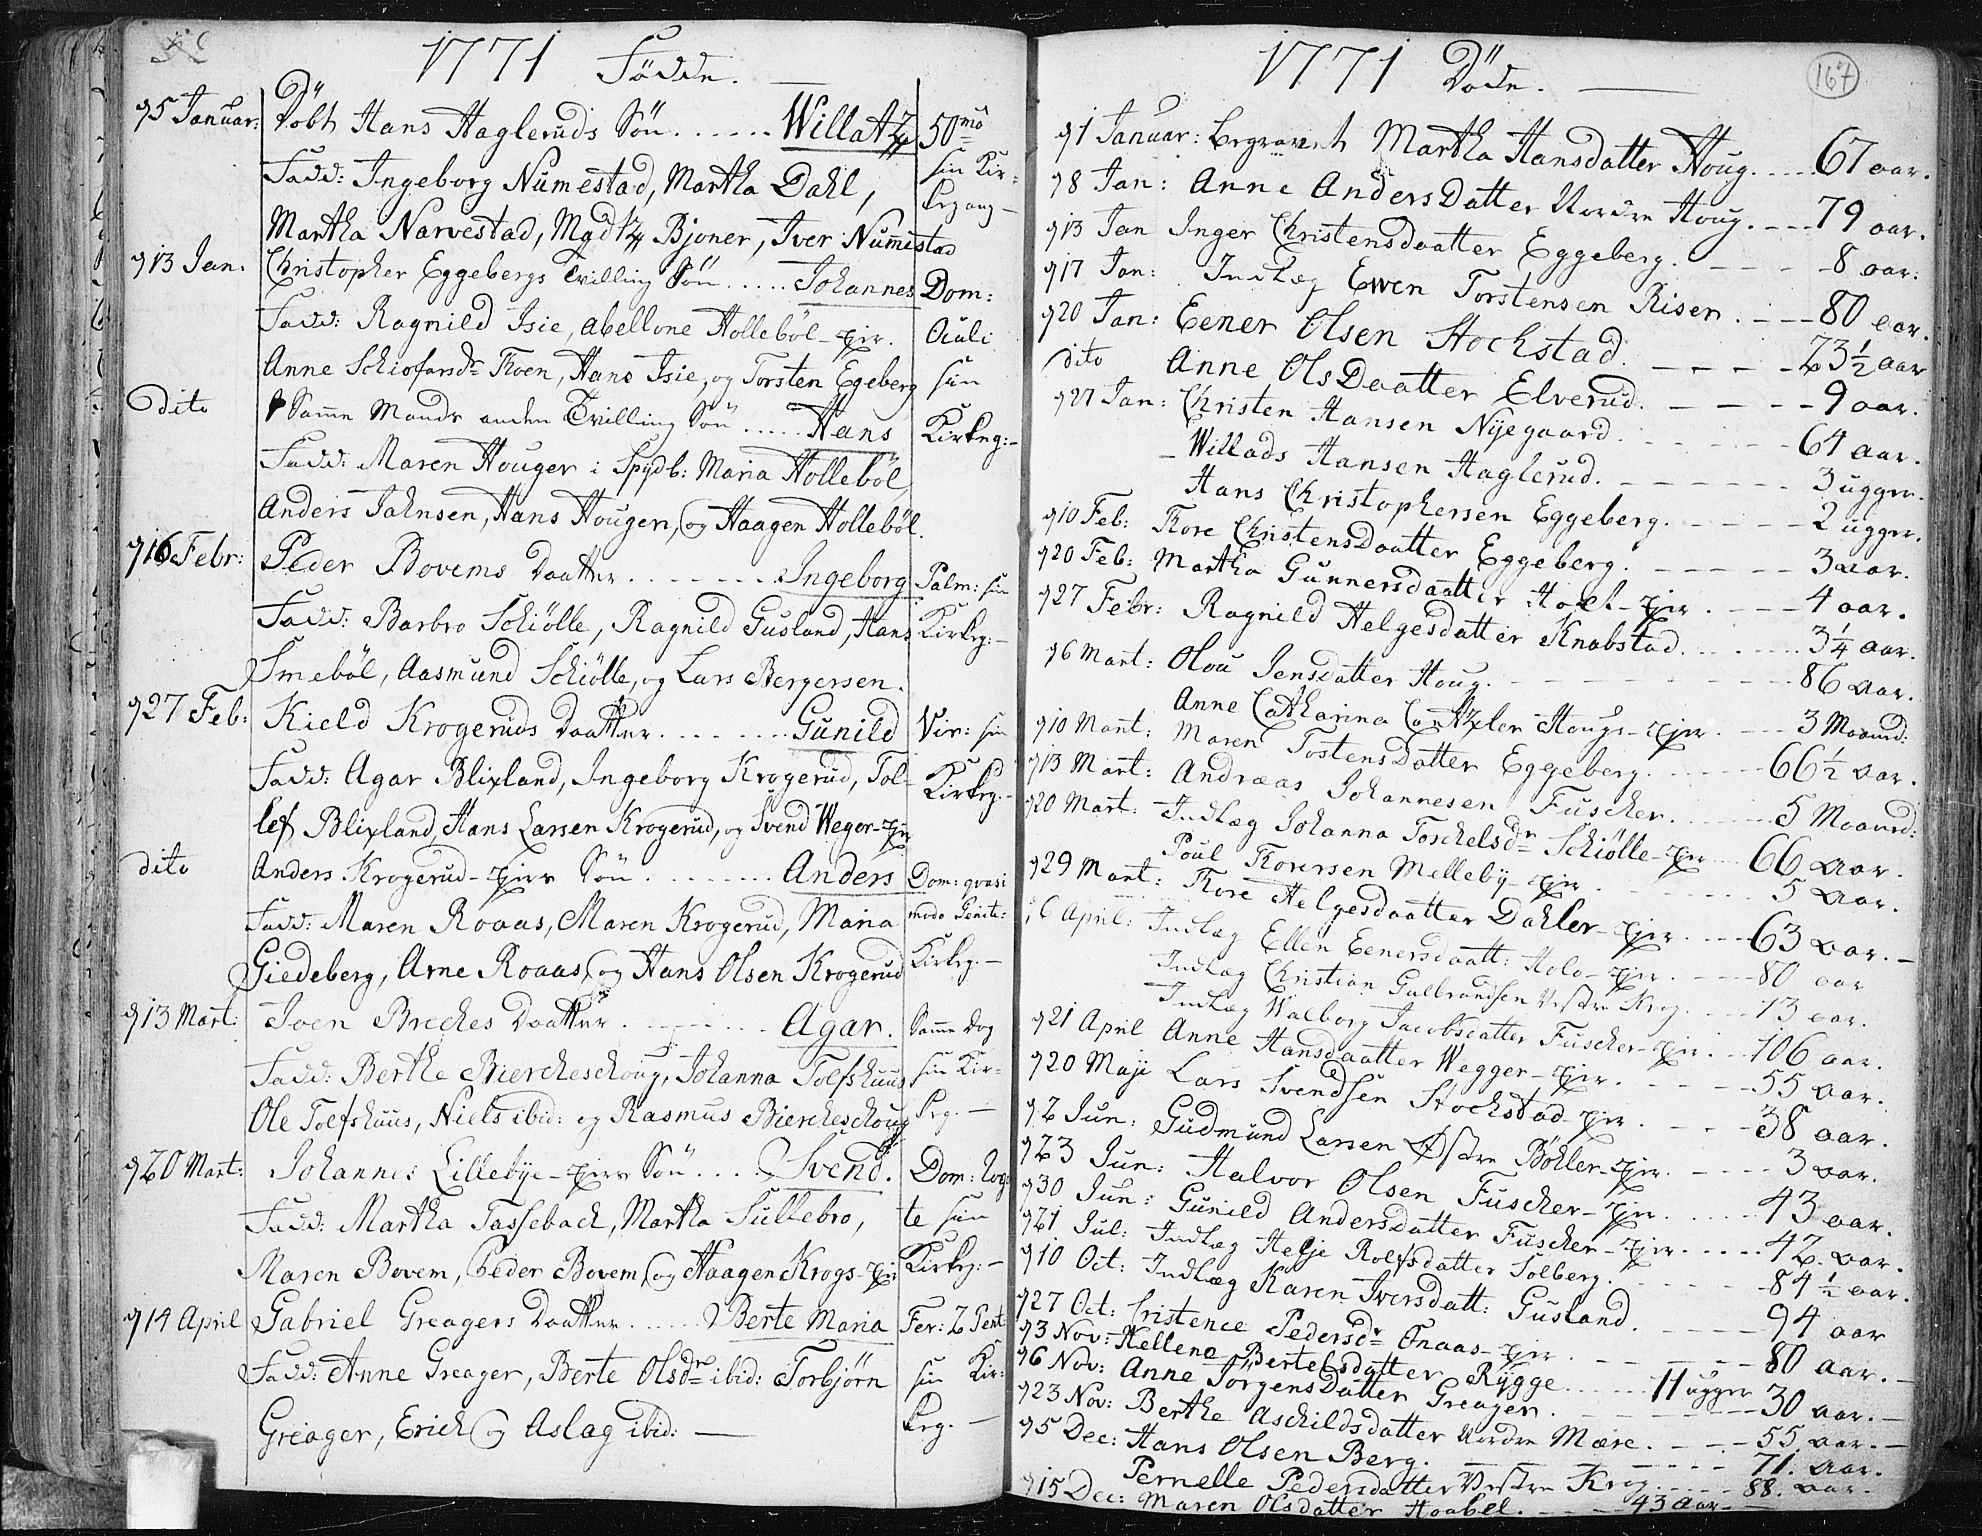 1771 Födde.
d 5 Januar: Döbt Hans Hagleruds Sön ...... Willatz 50mô
Fadd: Ingeborg Numestad, Martha Dahl, sin Kir-
Martha Narvestad, Bjoner, Iver Numestad kegang
d 13 Jan. Christopher Eggebergs Tvilling Sön ..... Johannes Dom:
Fadd: Ragnild Isie, Abellone Holleböl-ejer. Oculi
Anne Thoen, Hans Isie, og Torsten Egeberg sin
dito Samme Mands anden Tvilling Sön ..... Hans Kirkeg:-
Fadd: Maren Houger i Spydb: Maria Holleböl,
Anders Jahnsen, Hans Hougen, og Haagen Holleböl.
d 16 Febr: Peder Bovems Daatter ....... Ingeborg Palm: sin
Fadd: Barbro Schiölle, Ragnild Gusland, Hans Kirkeg:-
Smeböl, Aasmund Schiölle, og Lars Bergersen.
d 27 Feb: Kield Krogeruds Daatter ....... Gunild Vir: sin
Fadd: Agar Blixland, Ingeborg Krogerud, Tol- Kirkeg.-
lef Blixland, Hans Larsen Krogerud, og Svend Weger-ejer
dito Anders Krogerud-ejers Sön ........ Anders Dom: qvasi
Fadd: Maren Roaas, Maren Krogerud, Maria modo Genite:
Giedeberg, Arne Roaas, og Hans Olsen Krogerud Kirkeg.-
d 13 Mart: Joen Breches Daatter ........ Agar. Samme Dag
Fadd: Berthe Biercheschoug, Johanna Tolfshuus sin Kir-
Ole Tolfshuus, Niels ibid: og Rasmus Biercheschoug keg. -
d 20 Mart: Johannes Lillebye-ejers Sön .... Svend. Dom:
Fadd: Martha Tassebach, Martha Sullebro, te sin
Maren Bovem, Peder Bovem, og Haagen Krogs-ejer Kirkeg: -
d 14 April Gabriel Greagers Daatter ..... Berte Maria Fer: 2 Pent
Fadd: Anne Greager, Berte Olsdr ibid: Torbjörn sin Kir-
Greager, Erich og Aslag ibid: keg. -
1771 Döde.
167
d 1 Januar: Begravet Martha Hansdatter Houg. .... 67 aar.
d 8 Jan: Anne AndersDatter Nordre Houg. --- 79 aar.
d 13 Jan Inger Christensdaatter Eggeberg. ---- 8 aar.
d 17 Jan: Indlæg Ewen Torstensen Riser. --- 80 aar.
d 20 Jan: Eener Olsen Stochstad. ----- 23½ aar
dito Anne OlsDaatter Elverud. ---- 9 aar.
d 27 Jan: Christen Hansen Nyegaard ------ 64 aar.
Willads Hansen Haglerud. ------- 3 ugger.
Hans Christophersen Eggeberg. ----- 2 ugger.
d 10 Feb: Thore ChristensDaatter Eggeberg. ----- 3 aar.
d 20 Feb: Martha Gunnersdaatter Hoel-ejer. --- 4 aar.
d 27 Febr: Ragnild Helgesdatter Knabstad ....... 3¼ aar.
d 6 Mart: Olou Jensdatter Houg. -------- 86 aar.
Anne Catharina Hougs-ejer. --- 3 Maaned:
d 10 Mart: Maren TostensDatter Eggeberg. ----- 66½ aar.
d 13 Mart: Andreas Johannesen Fuscher. ..... 5 Maaned:
d 20 Mart: Indlæg Johanna Torchelsdr Schiölle-ejer... 66 aar.
Poul Thoresen Melleby-ejer. ------ 5 aar.
d 29 Mart: Thore Helgesdaatter Dahler-ejer. --- 63 aar. -
6 April: Indlæg Ellen Eenersdaatt: Holo-ejer. --- 80 aar
Indlæg Christian Gulbrandsen Vestre Krog. --- 73 aar.
Indlæg Walborg Jacobsdatter Fuscher-ejer. -- 106 aar.
d 21 April Anne Hansdaatter Wegger-ejer. ---- 55 aar.
d 20 Maji Lars Svendsen Stochstad-ejer. --- 38 aar.
d 2 Jun: Gudmund Larsen Østre Böhler-ejer. ---- 3 aar.
d 23 Jun: Halvor Olsen Fuscher-ejer. ..... 43 aar.
d 30 Jun: Gunild Andersdatter Fuscher-ejer ..... 42 aar.
d 21 Jul: Indlæg Helje Rolfsdatter Solberg. ----- 84½ aar.
d 10 Oct: Indlæg Karen Iversdatt: Gusland. ---- 94 aar
d 27 Oct: Cristence Pedersdr Onaas-ejer. ------ 80 aar. -
d 3 Nov: Hellene Bertelsdatter Rygge ..... 11 ugger
d 6 Nov: Anne JörgensDatter Greager. ------- 30 aar. -
d 23 Nov: Berthe Aschildsdatter Nordre Mære. ---- 55 aar. -
d 5 Dec: Hans Olsen Berg. ------- 71. aar.
Pernelle Pedersdatter Vestre Krog ..... 88. aar.
d 15 Dec: Maren Olsdatter Haabel. ---- 43 aar -